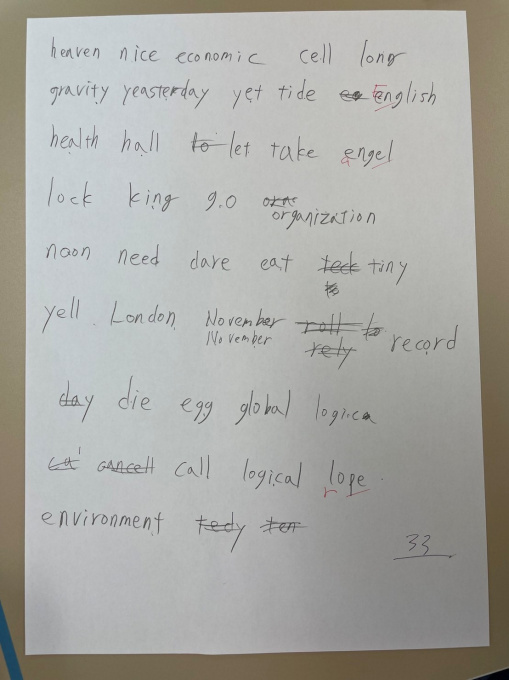 heaven nice economic cell long
gravity yeasterday yet tide English
health hall to let take engel
a
lock king go okas
organization
naon need dare eat teck tiny
to
yell London November roll to
November rely record
day die egg global logica
ca cancell call logical lope
r
environment tedy ten
33